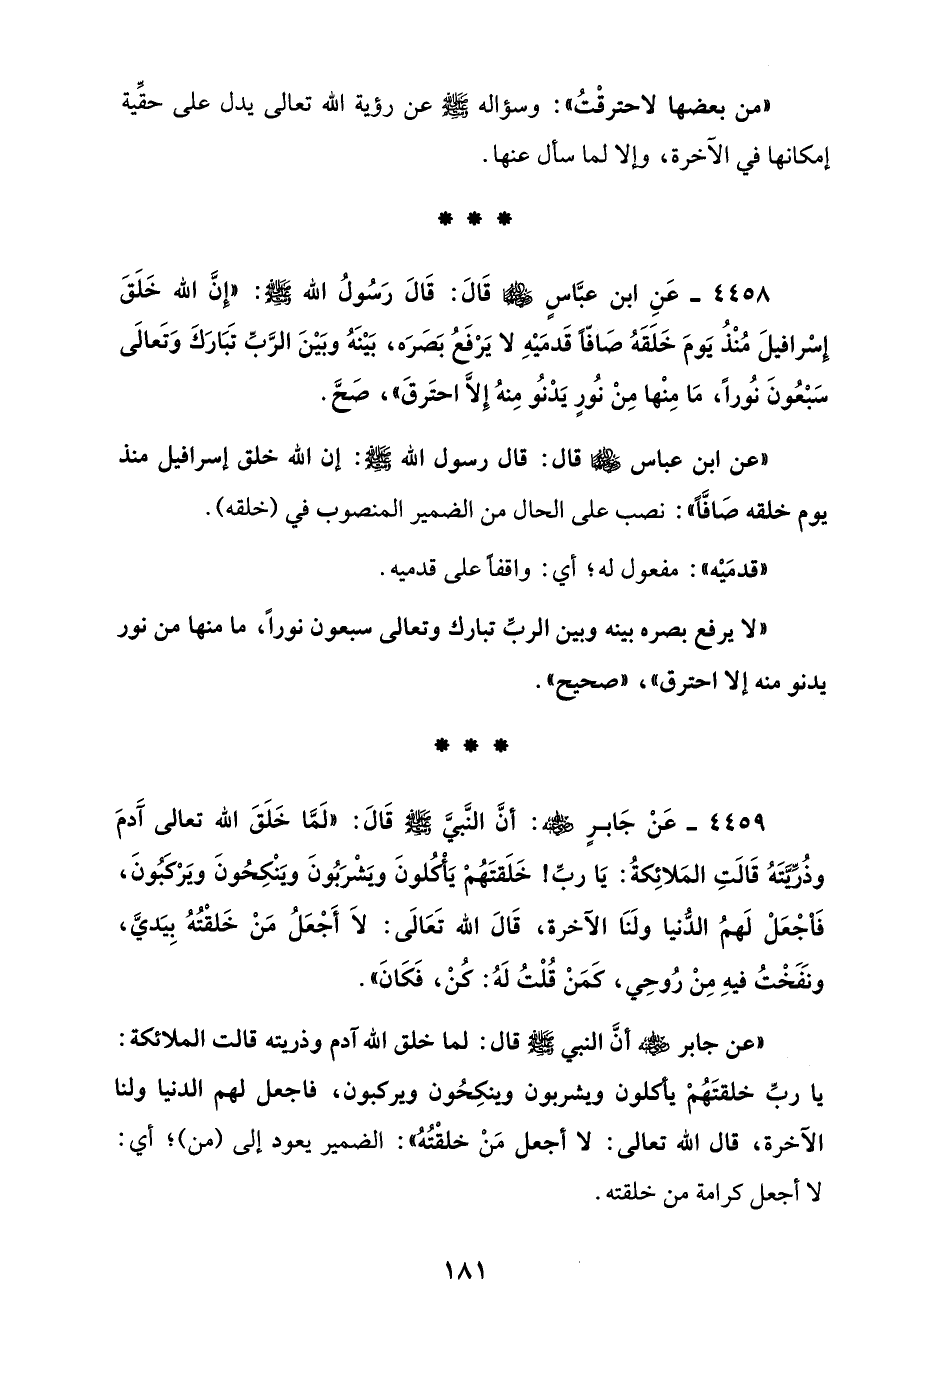 «من بعضها لاحترقْتُ»: وسؤاله ﷺ عن رؤية الله تعالى يدل على حقِّية
إمكانها في الآخرة، وإلا لما سأل عنها.
* * *
٤٤٥٨ ـ عَنِ ابن عبَّاسٍ ﵄ قَالَ: قَالَ رَسُولُ الله ﷺ: «إنَّ الله خَلَقَ
إسْرافيلَ مُنْذُ يَومَ خَلَقَهُ صَافّاً قَدمَيْهِ لا يَرْفَعُ بَصَرَه، بَيْنَهُ وبَيْنَ الرَبِّ تبَارَكَ وَتَعالَى
سَبْعُونَ نُوراً، مَا مِنْها مِنْ نُورٍ يَدْنُو مِنهُ إلاَّ احتَرقَ»، صَحَّ.
«عن ابن عباس ﵄ قال: قال رسول الله ﷺ: إن الله خلق إسرافيل منذ
يوم خلقه صَافَّاً»: نصب على الحال من الضمير المنصوب في (خلقه).
«قدمَيْه»: مفعول له؛ أي: واقفاً على قدميه.
«لا يرفع بصره بينه وبين الربِّ تبارك وتعالى سبعون نوراً، ما منها من نور
يدنو منه إلا احترق»، «صحيح».
* * *
٤٤٥٩ ـ عَنْ جَابرٍ ﵁: أنَّ النَّبيَّ ﷺ قَالَ: «لَمَّا خَلَقَ الله تعالى آَدمَ
وذُرِّيَّتَهُ قَالَتِ المَلائِكةُ: يَا ربِّ! خَلَقتَهُمْ يَأْكُلونَ ويَشْرَبُونَ ويَنْكِحُونَ ويَرْكَبُونَ،
فَاْجْعَلْ لَهمُ الدُّنيا ولَنَا الآخرة، قَالَ الله تَعَالَى: لاَ أَجْعَلُ مَنْ خَلقْتُهُ بِيَديَّ،
ونَفَخْتُ فيهِ مِنْ رُوحِي، كَمَنْ قُلْتُ لَهُ: كُنْ، فَكَانَ».
«عن جابر ﵁ أنَّ النبي ﷺ قال: لما خلق الله آدم وذريته قالت الملائكة:
يا ربِّ خلقتَهُمْ يأكلون ويشربون وينكِحُون ويركبون، فاجعل لهم الدنيا ولنا
الآخرة، قال الله تعالى: لا أجعل مَنْ خلقْتُهُ»: الضمير يعود إلى (من)؛ أي:
لا أجعل كرامة من خلقته.
١٨١